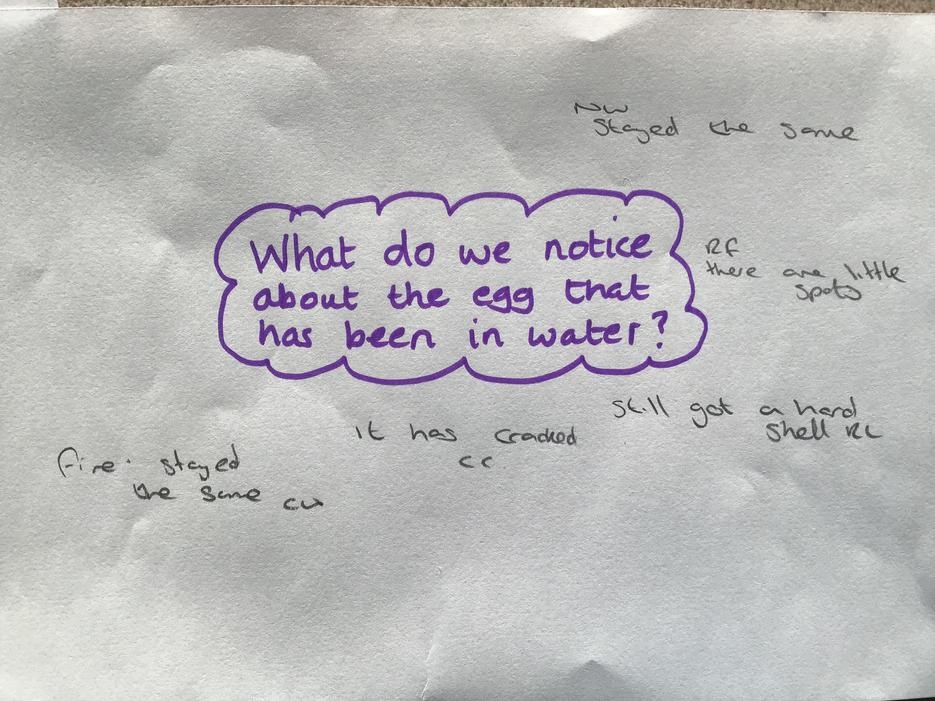 NW
Stayed the same
What do we notice
about the egg that
has been in water?
RF
there are little
spots
Still got a hard
shell RL
it has cracked
CC
fine. stayed
the same CW